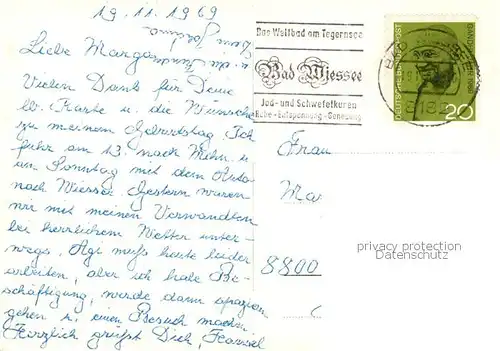 19.11.1969
Liebe Marga
Vielen Dank für Deine
lb. Karte u. die Wünsche
zu meinem Geburtstag. Ich
fuhr am 13. nach Mchn. u.
am Sonntag mit dem Auto
nach Wiessee. Gestern waren
wir mit meinen Verwandten
bei herrlichem Wetter unter-
wegs. Agi muß heute leider
arbeiten, aber ich habe Be-
schäftigung, werde dann spazieren
gehen u. einen Besuch machen
Herzlich grüßt Dich,
Das Weltbad am Tegernsee
Bad Wiessee
Jod- und Schwefelkuren
Ruhe - Entspannung - Genesung
DEUTSCHE BUNDESPOST
20
Frau
Ma
8800
privacy protection
Datenschutz